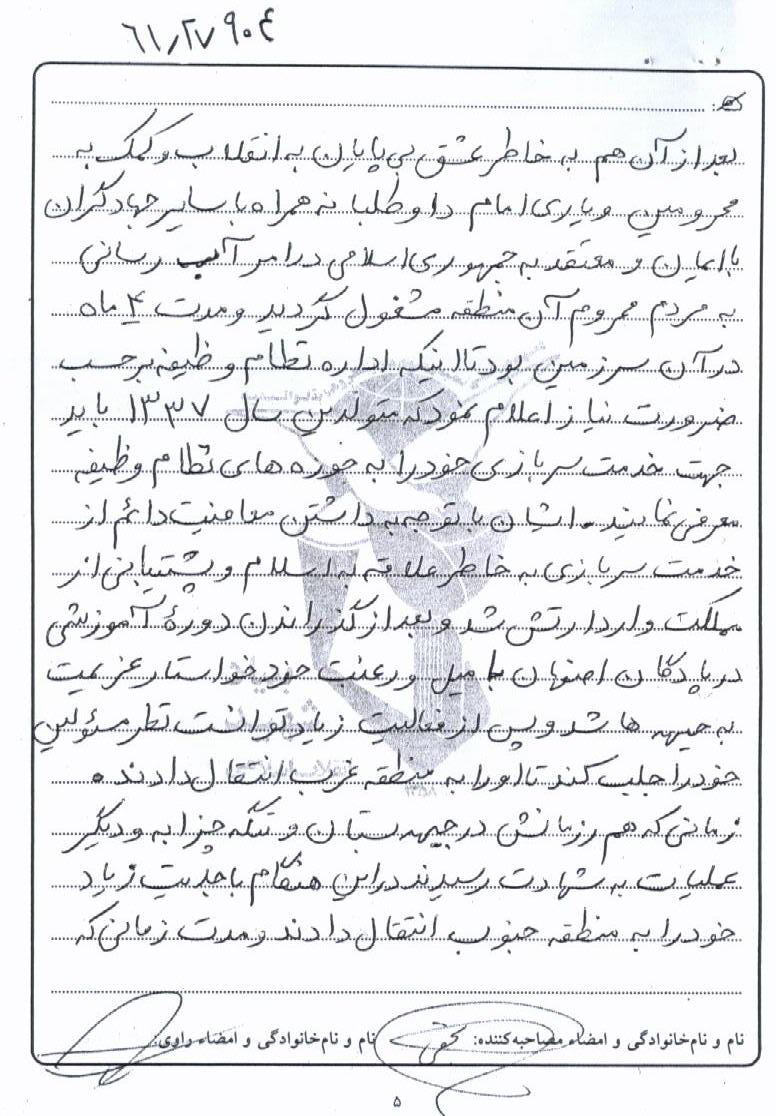 ۶۱,۲۷۹۰۴
بعد از آن هم به خاطر عشق بی پایان به انقلاب و کمک به
محرومین و یاری امام داوطلبانه همراه با سایر جهادگران
با ایمان و معتقد به جمهوری اسلامی در امر آب رسانی
به مردم محروم آن منطقه مشغول گردید و مدت ۴ ماه
در آن سرزمین بود تا اینکه اداره نظام وظیفه برحسب
ضرورت نیاز اعلام نمود که متولدین سال ۱۳۳۷ باید
جهت خدمت سربازی خود را به حوزه های نظام وظیفه
معرفی نمایند. ایشان با توجه به داشتن معافیت دائم از
خدمت سربازی به خاطر علاقه به اسلام و پشتیبانی از
مملکت وارد ارتش شد و بعد از گذراندن دورهٔ آموزشی
در پادگان اصفهان با میل و رغبت خود خواستار عزیمت
به جبهه ها شد و پس از فعالیت زیاد توانست نظر مسئولین
خود را جلب کند تا او را به منطقه غرب انتقال دادند.
زمانی که هم رزمانش در جبهه بستان و تنگه چزابه و دیگر
عملیات به شهادت رسیدند در این هنگام با جدیت زیاد
خود را به منطقه جنوب انتقال دادند و مدت زمانی که
نام و نام‌خانوادگی و امضاء مصاحبه‌کننده: نام و نام‌خانوادگی و امضاء راوی:
۵